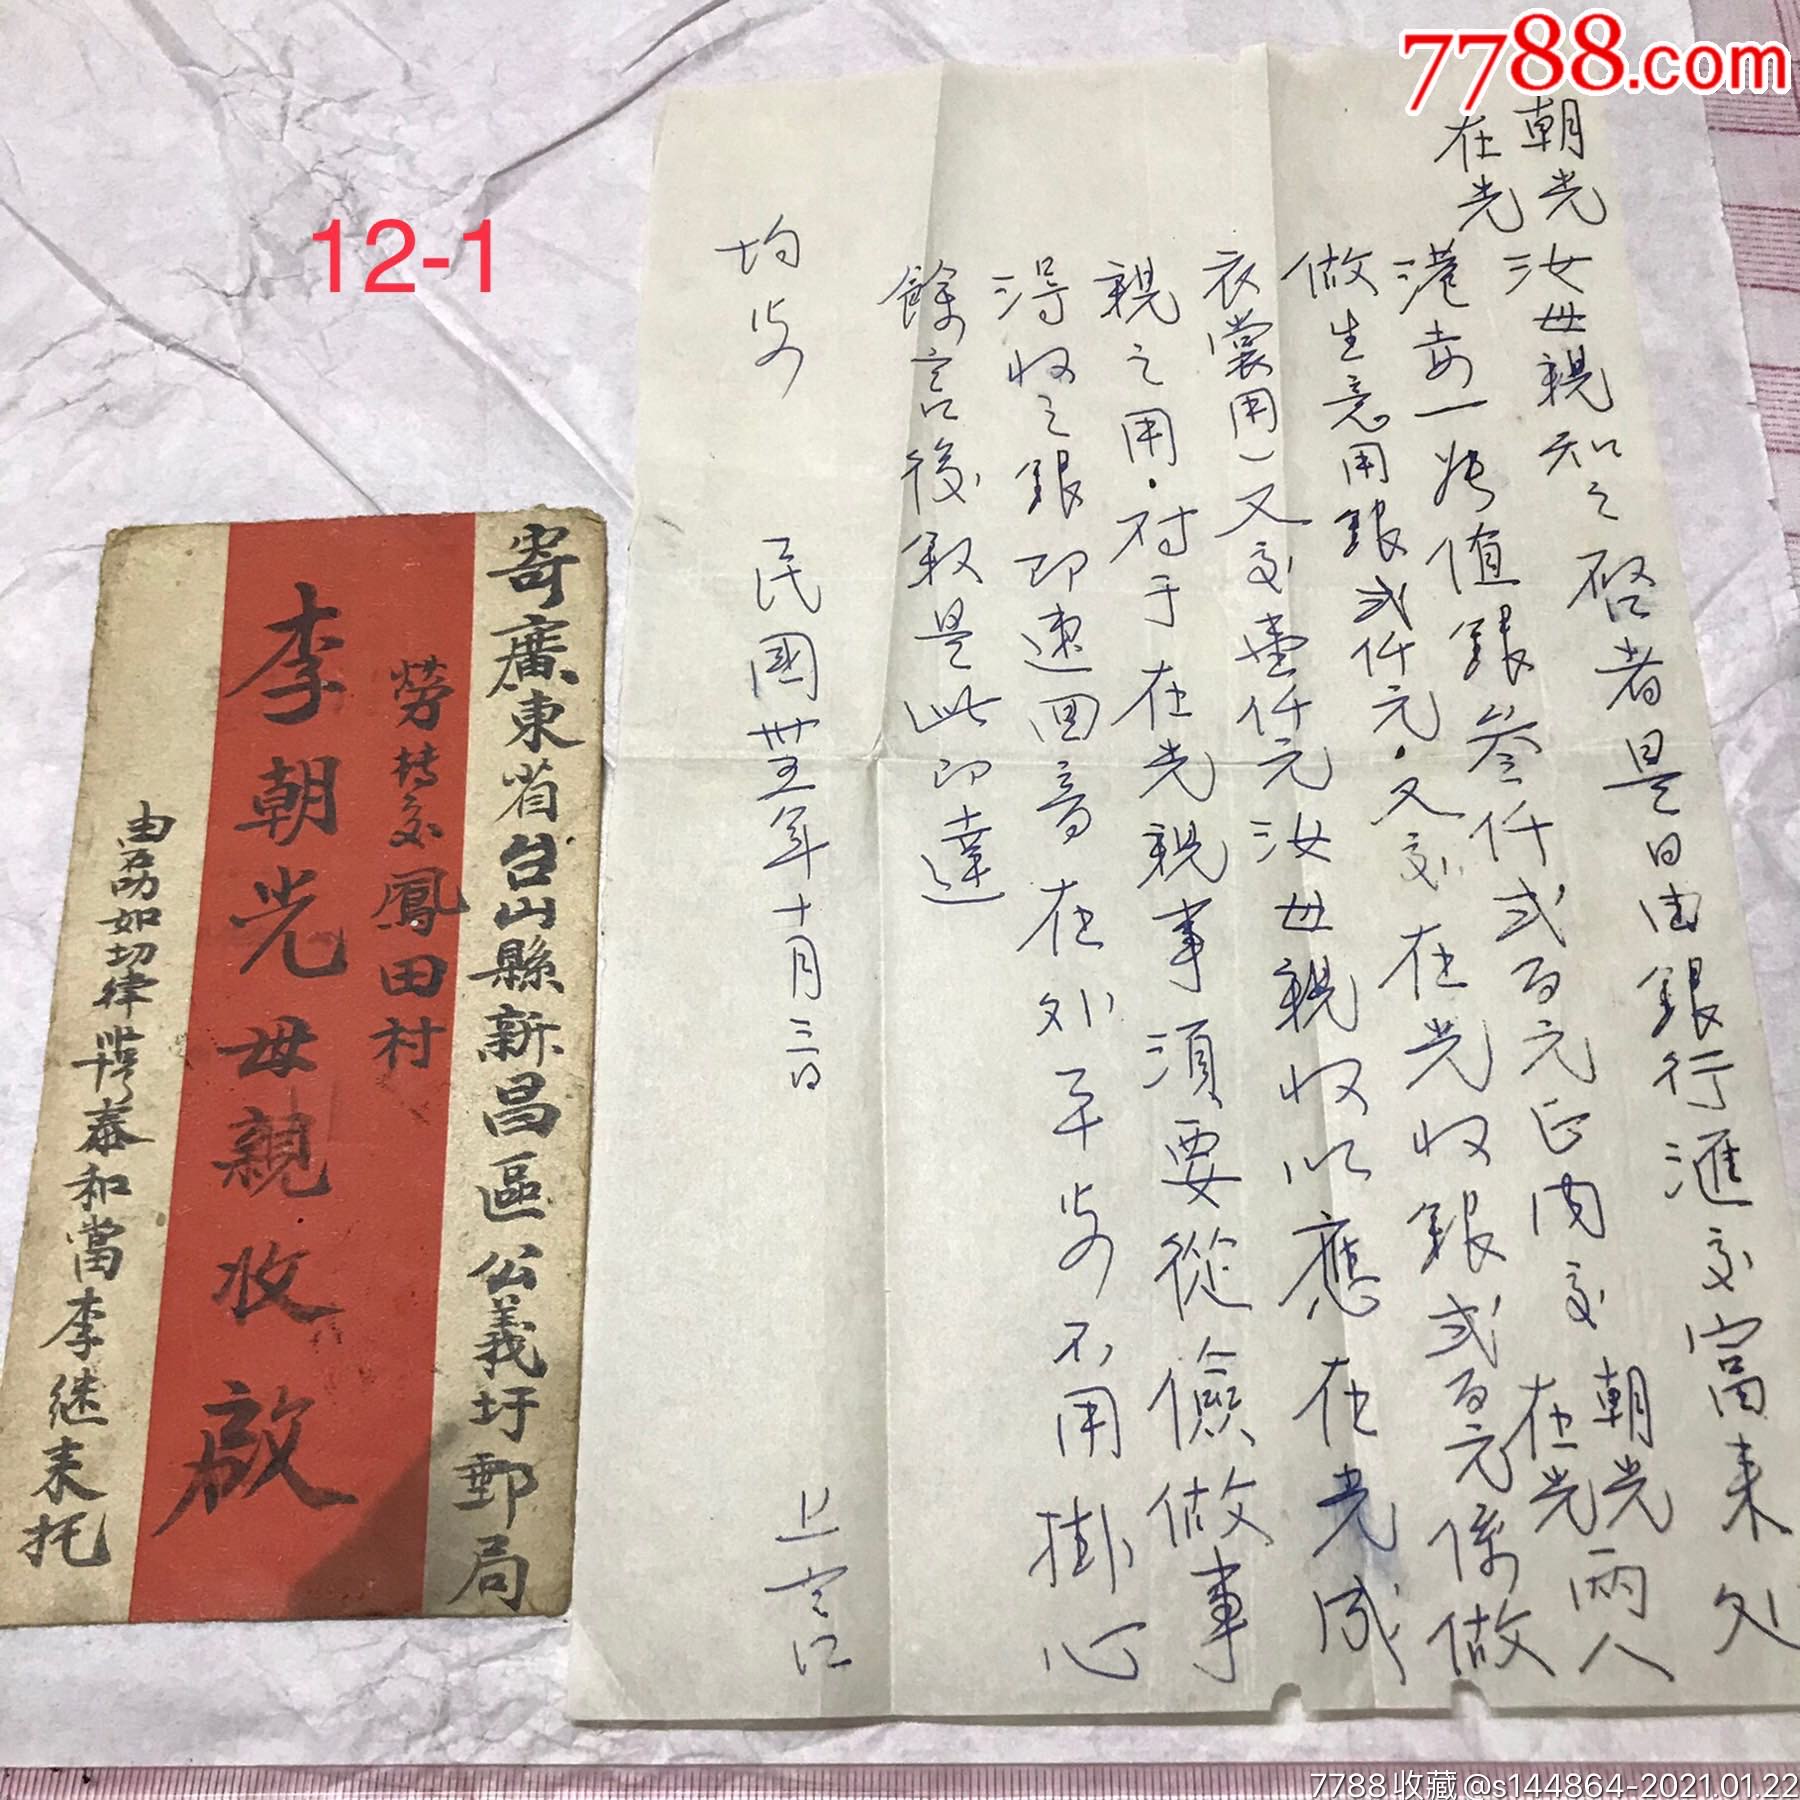 7788.com
12-1
寄廣東省台山縣新昌區公義圩郵局
勞轉交鳳田村
李朝光母親收啟
泰和當李继来托
朝光
在光
汝母親知之啓者是日由銀行滙交富来处
港壱一 值銀叁仟弍百元正内交朝光在光兩人
做生意用銀弍仟元·又交在光收銀弍百元係做
衣裳用)又交壹仟元汝母親收以應在光成
親之用·对于在光親事須要從儉做事
得收之銀即速回音在外平安不用掛心
餘言後叙是此即達
均安
民國卅五年十月三日
上言
7788收藏@s144864-2021.01.22